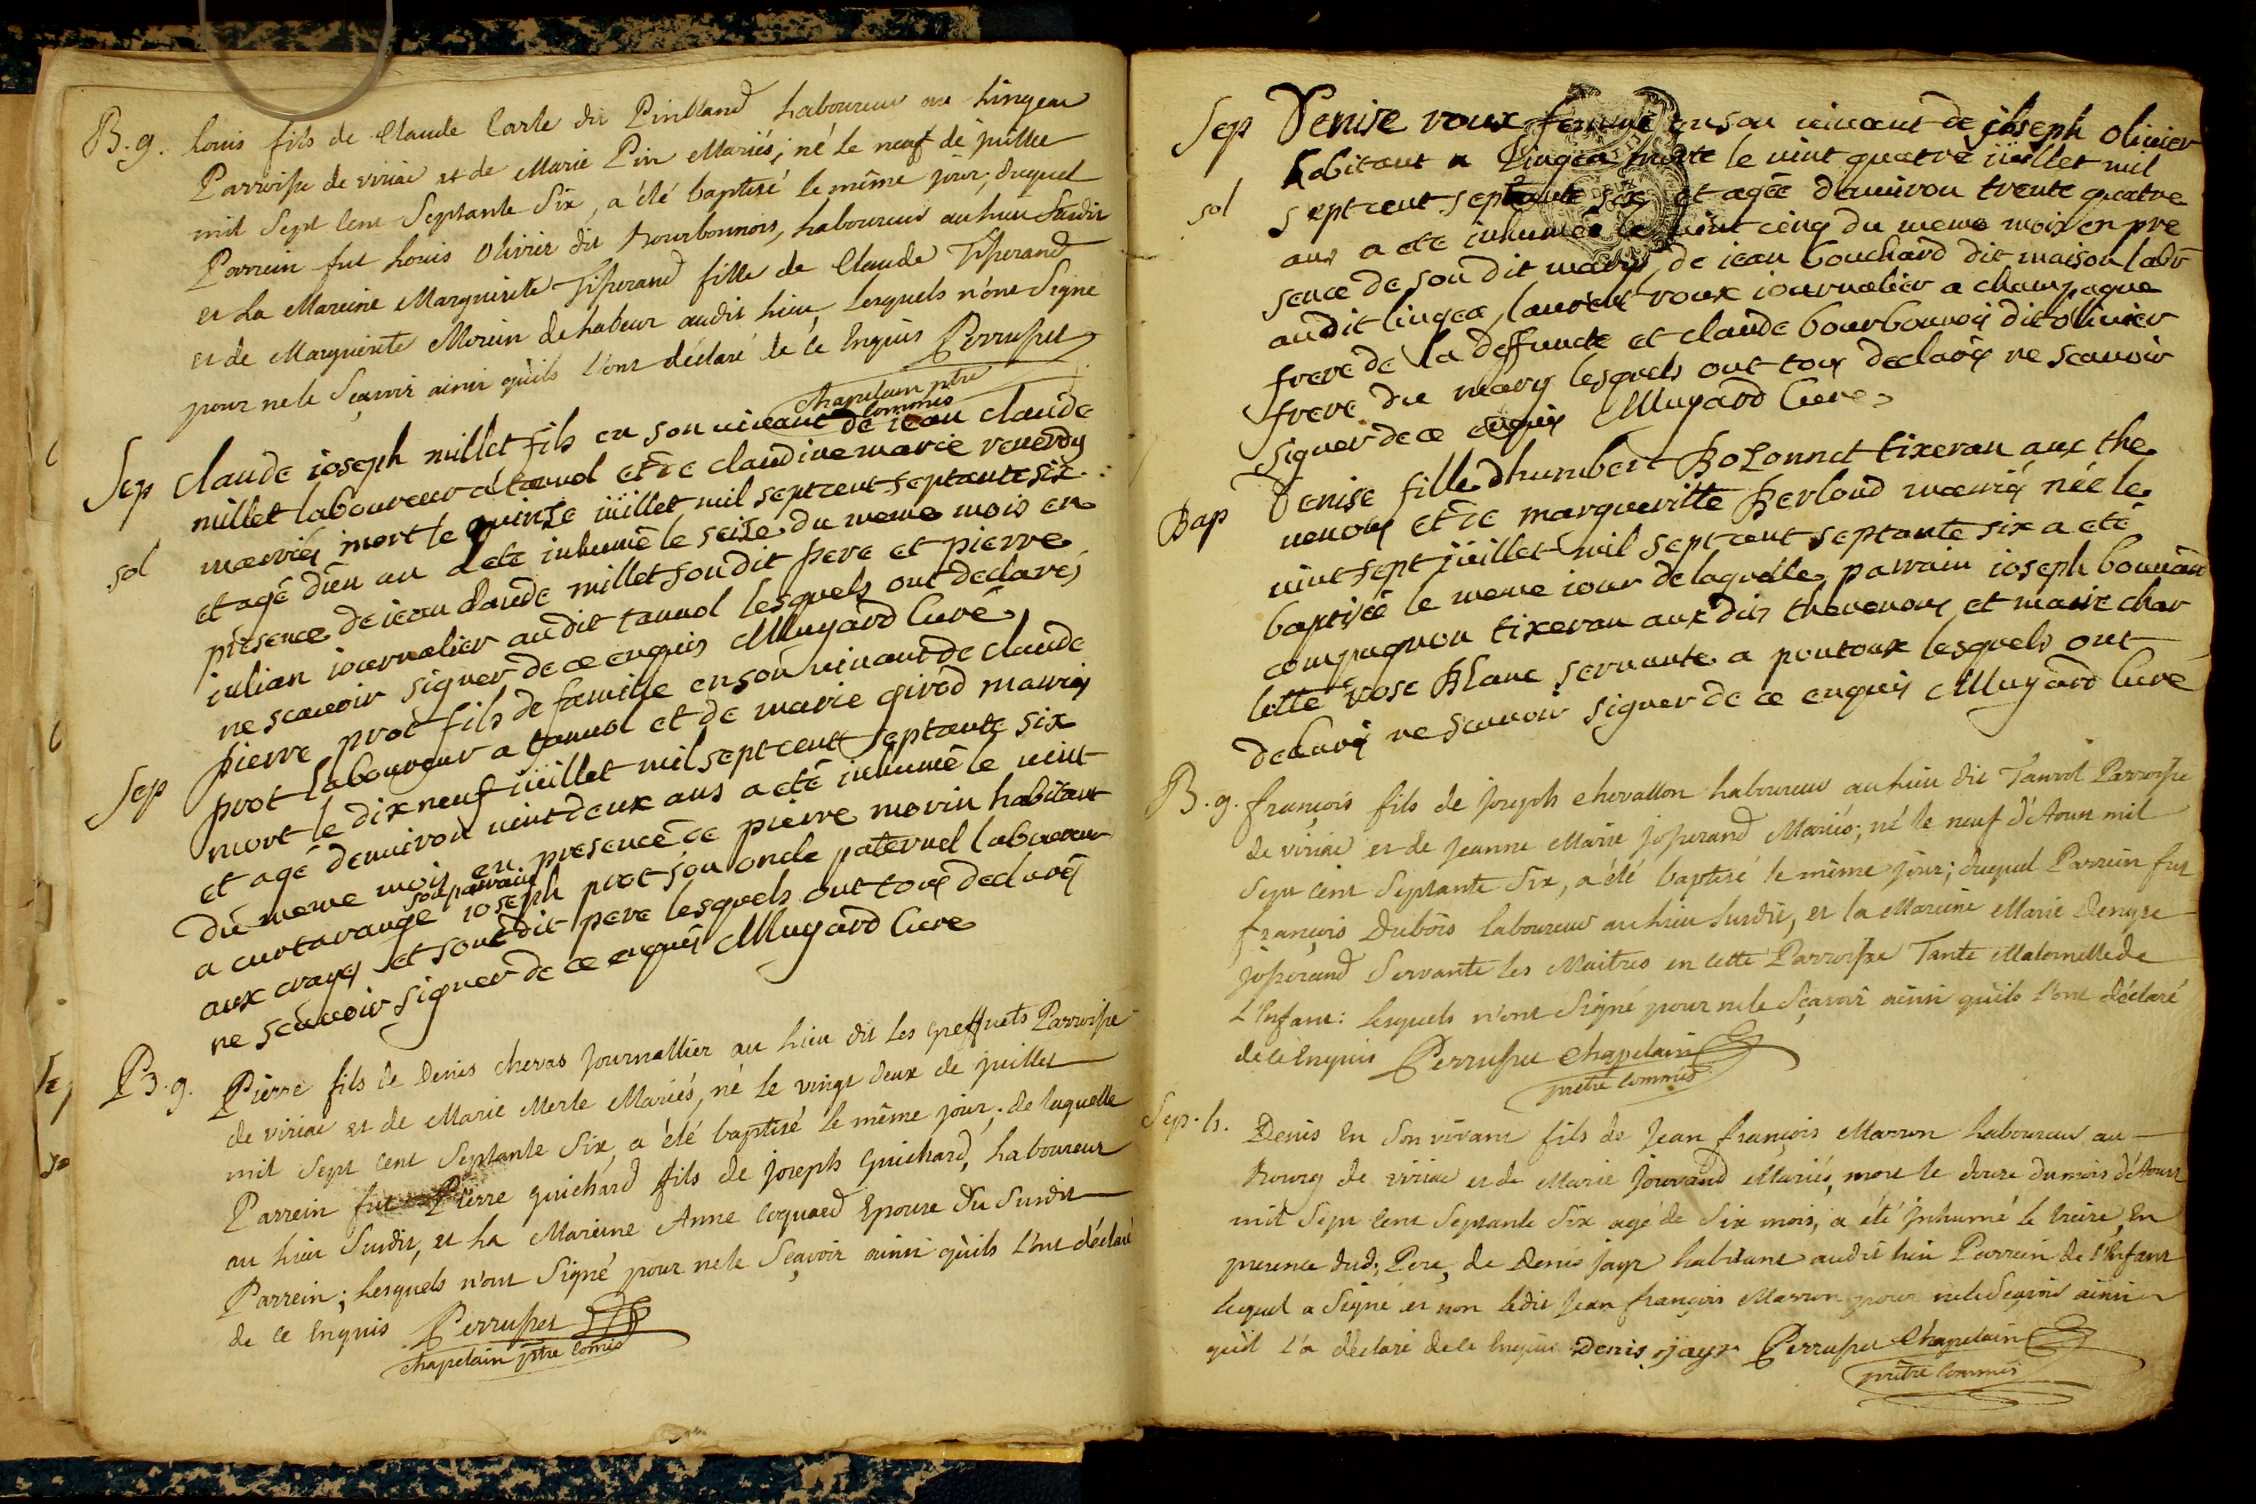 B. g. Louis fils de Claude Carle dit Pinbland Laboureur au Lingeat
Parroisse de viriac et de Marie Pin Mariés; né le neuf de juillet
mil Sept Cent Septante Six, a été baptisé le même jour; duquel
Parrein fut Louis Olivier dit Bourbonnois, Laboureur au lieu Susdit
et La Mareine Marguerite Tisserand fille de Claude Tisserand
et de Marguerite Morin de Labeur audit Lieu, Lesquels n'ont Signé
pour ne le Sçavoir ainsi qu'ils l'ont déclaré de ce Enquis Perrusset
Chapelain ptre
Commis
Sep Claude ioseph millet fils en son vivant de iean claude
millet laboureur a tanvol et de claudine marie reverdy
sol mariés mort le quinse iüillet mil sept cent septante six
et agé d'un an a ete inhumé le seise du meme mois en
presence de iean claude millet son dit pere et pierre
iulian iournalier audit tanvol lesquels ont declarés
ne scavoir signer de ce enquis Muyard Curé
Sep pierre prot fils de famille en son vivant de claude
prot laboureur a tanvol et de marie girod mariés
mort le dix neuf iüillet mil sept cent septante six
et agé d'environ vint deux ans a eté inhumé le vint
du meme mois en presence de pierre morin habitant
son parrain
a curtarange ioseph prot son oncle paternel laboureur
aux crayes et son dit pere lesquels ont tous declarés
ne scavoir signer de ce enquis Muyard Cure
B. g. Pierre fils de Denis chevas Journallier au Lieu dit les greffets Parroisse
de viriac et de Marie Merle Mariés, né le vingt deux de juillet
mil Sept Cent Septante Six, a été baptisé le même jour; de laquelle
Parrein fut Pierre guichard fils de joseph guichard, Laboureur
au Lieu Susdit, et La Mareine Anne Coquard Epouse du Susdit
Parrein; Lesquels n'ont Signé pour ne le Sçavoir ainsi qu'ils l'ont déclaré
de ce Enquis Perrusset
chapelain ptre Comis
Sep Denise roux femme en son vivant de ioseph olivier
habitant a lingea morte le vint quatre iüillet mil
sol sept cent septante six et agée d'environ trente quatre
ans a ete inhumée le vint cinq du meme mois en pre
sence de son dit mary, de iean bouchard dit maison labr
audit lingea, laurent roux iournalier a champagne
frere de la deffuncte et claude bourbonois dit ollivier
frere du mary lesquels ont tous declarés ne scavoir
signer de ce enquis Muyard Cure
Bap Denise fille d'humbert Bolonnet tixeran aux the
venons et de margueritte Perloud mariés née le
vint sept iüillet mil sept cent septante six a eté
baptisée le meme iour de laquelle parrain ioseph bouvard
compagnon tixeran aux dits thevenons et maire char
lotte rose Blanc servante a pontoux lesquels ont
declarés ne scavoir signer de ce enquis Muyard Cure
B. g. françois fils de Joseph chevallon Laboureur au Lieu dit Tanvol Parroisse
de viriac et de Jeanne Marie josserand Mariés; né le neuf d'Aoust mil
Sept Cent Septante Six, a été baptisé le même jour; duquel Parrein fut
françois Dubois laboureur au Lieu Susdit, et la Mareine Marie Denyse
josserand Servante les Maitres en cette Parroisse Tante Maternelle de
L'Enfant: Lesquels n'ont Signé pour ne le Sçavoir ainsi qu'ils l'ont déclaré
de ce Enquis Perrusset Chapelain
prêtre Commis
Sep. h. Denis En Son vivant fils de Jean françois Marron Laboureur au
Bourg de viriac et de Marie Jouvand Mariés, mort le douze du mois d'Aoust
mil Sept Cent Septante Six agé de Six mois, a été Inhumé le treize, En
presence dud. Pere, de Denis jayr habitant audit lieu Parrein de l'Enfant
lequel a Signé et non ledit Jean françois Marron pour ne le Sçavoir ainsi
qu'il l'a déclaré de ce Enquis Denis jayr Perrusset Chapelain
prêtre Commis